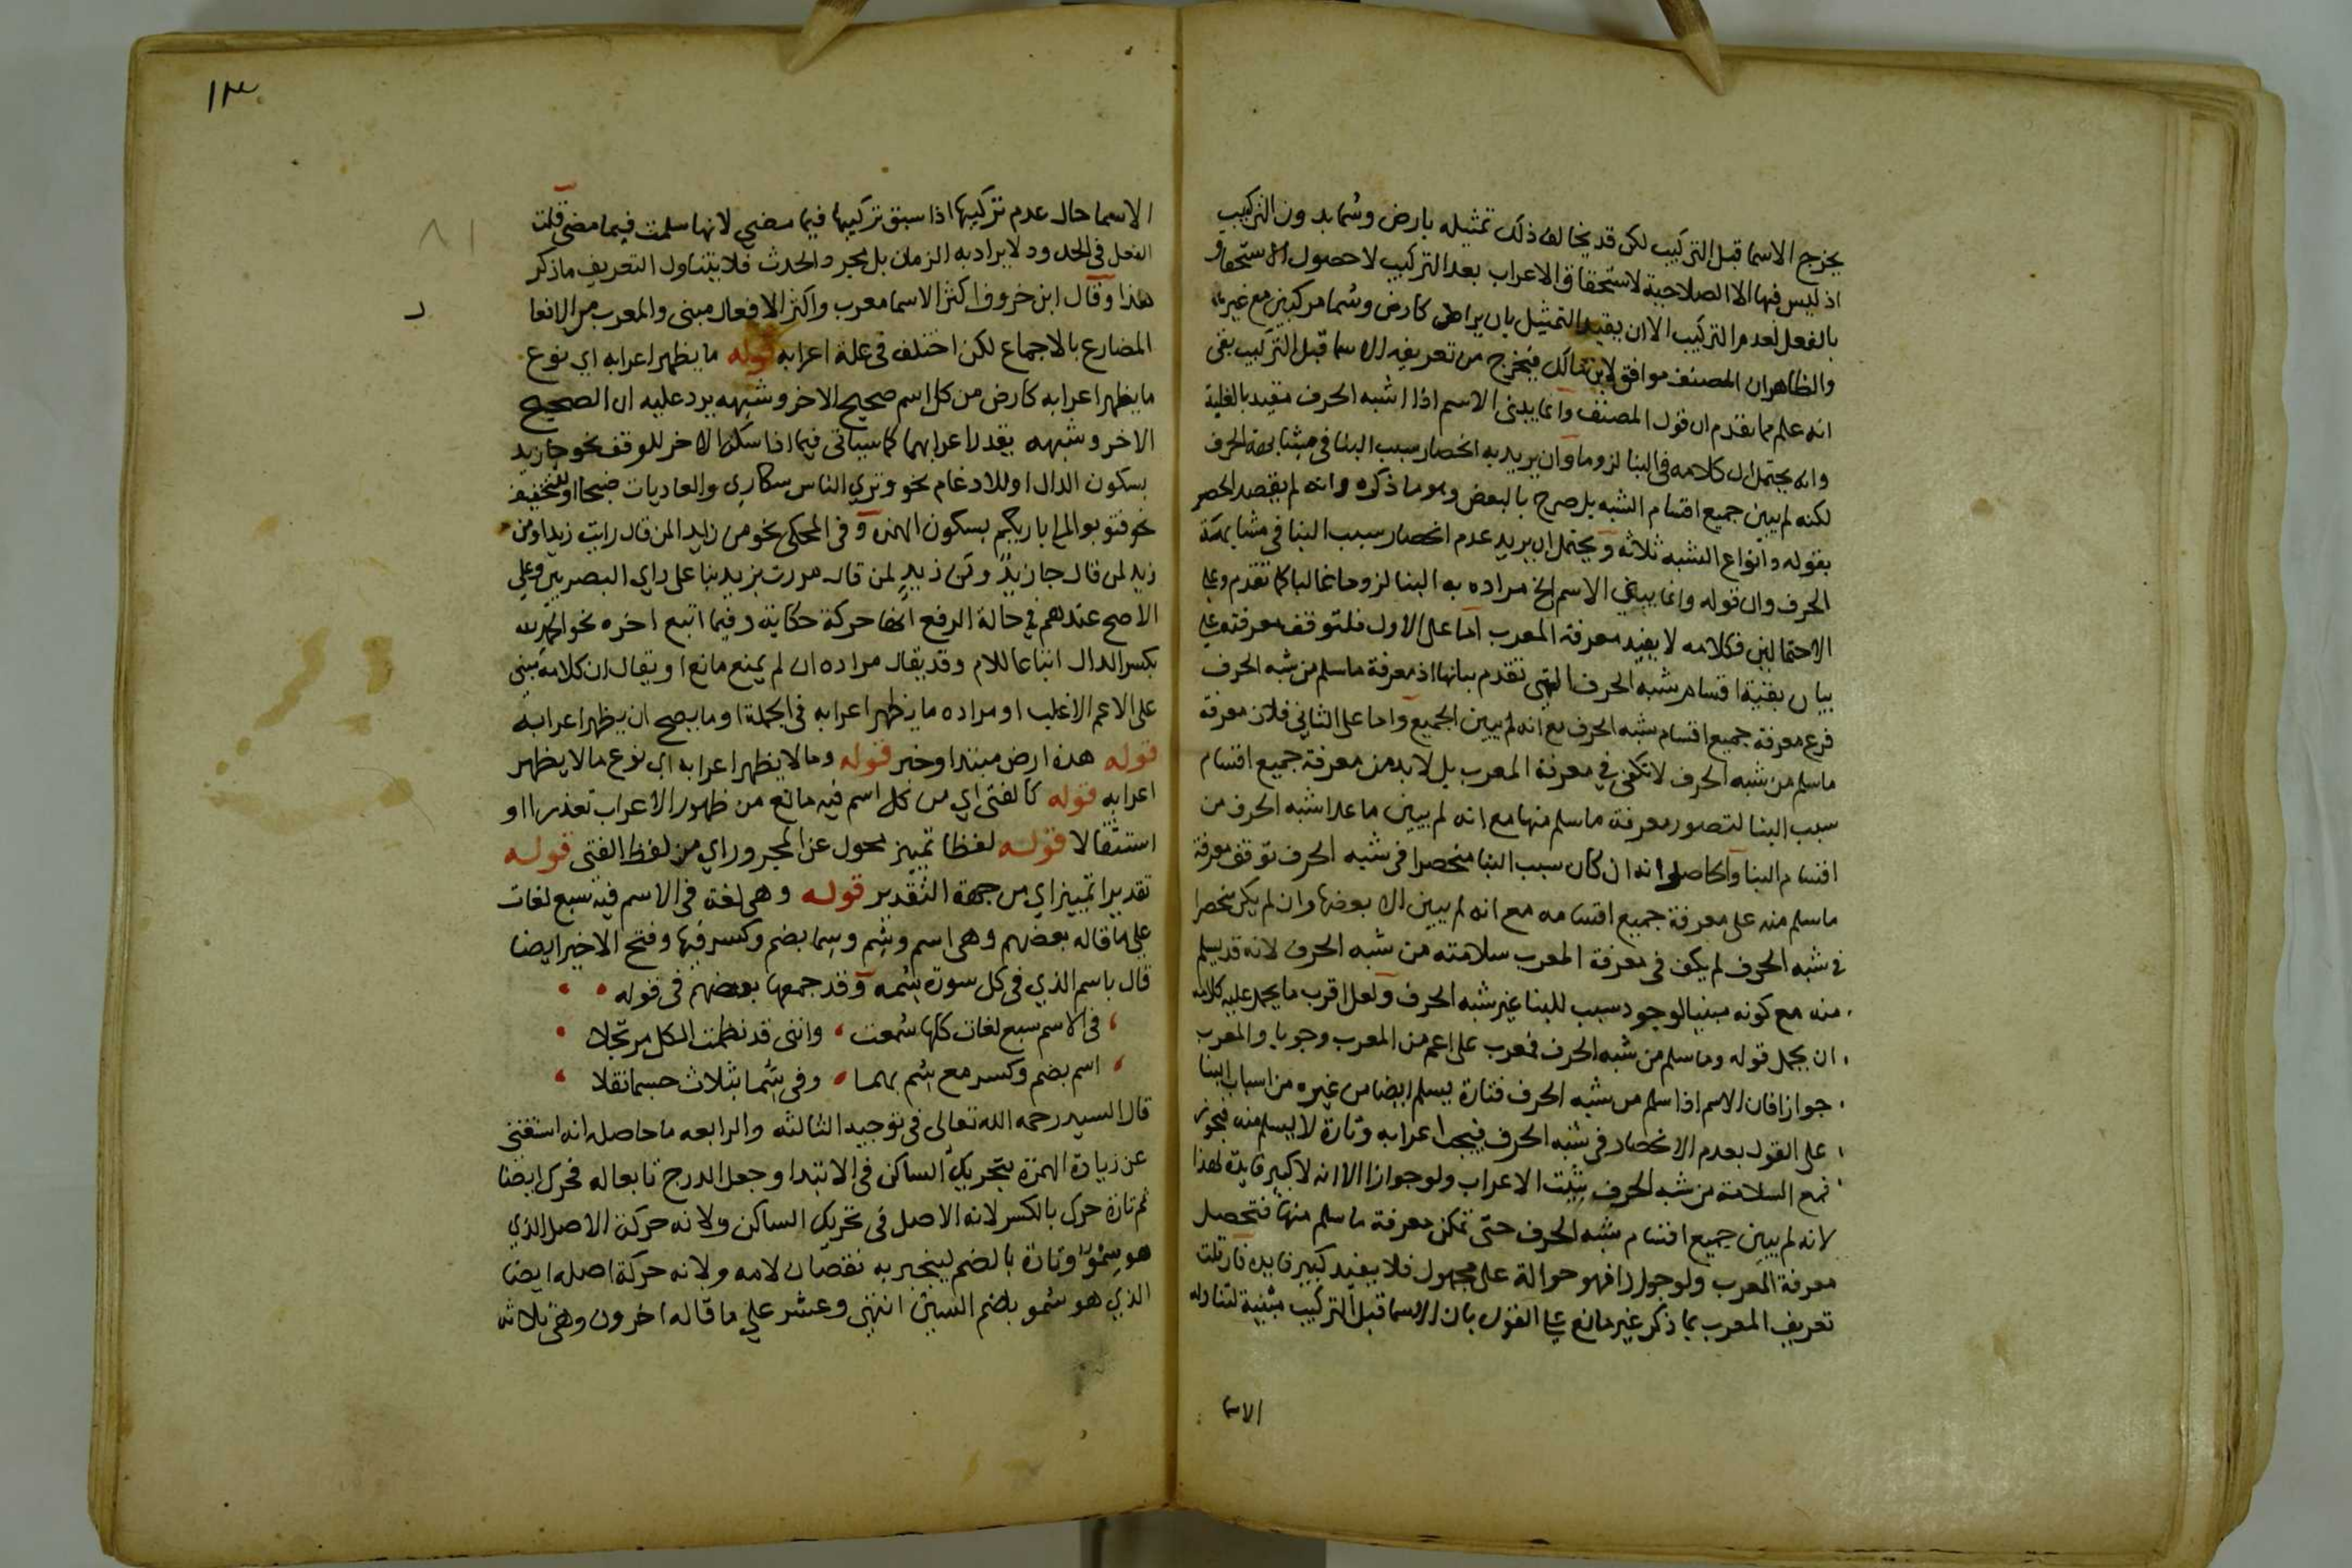 يخرج الاسما قبل التركيب لكن قد يخالف ذلك تمثيله بارض وسُما بدون التركيب
اذ ليس فيها الا الصلاحية لاستحقاق الاعراب بعد التركيب لا حصول الاستحقاق
بالفعل لعدم التركيب الا ان يقيد التمثيل بان يراد كارض وسُما مركبين مع غيرهما
والظاهر ان المصنف موافق لابن مالك فيخرج من تعريفه الاسما قبل التركيب بقى
انه علم مما تقدم ان قول المصنف وانما يبنى الاسم اذا اشبه الحرف مقيد بالغلبة
وانه يحتمل ان كلامه في البنا لزوما وان يريد به انحصار سبب البنا في مشابهة الحرف
لكنه لم يبين جميع اقسام الشبه بل صرح بالبعض وهو ما ذكره وانه لم يقصد الحصر
بقوله وانواع الشبه ثلاثة ويحتمل ان يريد عدم انحصار سبب البنا في مشابهة
الحرف وان قوله وانما يبنى الاسم الخ مراده به البنا لزوما غالبا كما تقدم وعلى
الاحتمالين فكلامه لا يفيد معرفة المعرب اما على الاول فلتوقف معرفته على
بيان بقية اقسام شبه الحرف التي تقدم بيانها اذ معرفة ما سلم من شبه الحرف
فرع معرفة جميع اقسام شبه الحرف مع انه لم يبين الجميع واما على الثاني فلان معرفة
ما سلم من شبه الحرف لا تكفي في معرفة المعرب بل لا بد من معرفة جميع اقسام
سبب البنا لتصور معرفة ما سلم منها مع انه لم يبين ما عدا شبه الحرف من
اقسام البنا والحاصل انه ان كان سبب البنا منحصرا في شبه الحرف توقف معرفة
ما سلم منه على معرفة جميع اقسامه مع انه لم يبين الا بعضها وان لم يكن منحصرا
في شبه الحرف لم يكف في معرفة المعرب سلامته من شبه الحرف لانه قد يسلم
منه مع كونه مبنيا لوجود سبب للبنا غير شبه الحرف ولعل اقرب ما يحمل عليه كلامه
ان يحمل قوله وما سلم من شبه الحرف فمعرب على اعم من المعرب وجوبا والمعرب
جوازا فان الاسم اذا سلم من شبه الحرف فتارة يسلم ايضا من غيره من اسباب البنا
على القول بعدم الانحصار في شبه الحرف فيجب اعرابه وتارة لا يسلم منه فيجوز
فمع السلامة من شبه الحرف يثبت الاعراب ولو جوازا الا انه لا كبير فايدة لهذا
لانه لم يبين جميع اقسام شبه الحرف حتى تمكن معرفة ما سلم منها فتحصل
معرفة المعرب ولو جوازا فهو حوالة على مجهول فلا يفيد كبير فايدة فان قلت
تعريف المعرب بما ذكر غير مانع على القول بان الاسما قبل التركيب مبنية لتناوله
الاسما
١٣
الاسما حال عدم تركيبها اذا سبق تركيبها فيما مضى لانها سلمت فيما مضى قلت
الفعل في الحدود لا يراد به الزمان بل مجرد الحدث فلا يتناول التعريف ما ذكر
هذا وقال ابن خروف اكثر الاسما معرب واكثر الافعال مبنى والمعرب من الافعا
المضارع بالاجماع لكن اختلف في علة اعرابه قوله ما يظهر اعرابه اي نوع
ما يظهر اعرابه كارض من كل اسم صحيح الاخر وشبهه يرد عليه ان الصحيح
الاخر وشبهه يقدر اعرابهما كما سياتي فيما اذا سكن الاخر للوقف نحو جا زيد
بسكون الدال او للادغام نحو وترى الناس سكارى والعاديات ضبحا او للتخفيف
نحو فتوبوا الى باريكم بسكون الهمزة وفي المحكي نحو من زايدا لمن قال رايت زيدا ومن
زيد لمن قال جا زيدٌ ومن زيدٍ لمن قال مررت بزيد بنا على راي البصريين وعلى
الاصح عندهم في حالة الرفع انها حركة حكاية وفيما اتبع اخره نحو الحمد لله
بكسر الدال اتباعا للام وقد يقال مراده ان لم يمنع مانع او يقال ان كلامه مبني
على الاعم الاغلب او مراده ما يظهر اعرابه في الجملة او ما يصح ان يظهر اعرابه
قوله هذه ارض مبتدا وخبر قوله وما لا يظهر اعرابه اي نوع ما لا يظهر
اعرابه قوله كالفتى اي من كل اسم فيه مانع من ظهور الاعراب تعذرا او
استثقالا قوله لفظا تمييز محول عن المجرور اي من لفظ الفتى قوله
تقديرا تمييز اي من جهة التقدير قوله وهي لغة في الاسم فيه سبع لغات
على ما قاله بعضهم وهي اسم وسُم وسِما بضم وكسر فيها وفتح الاخير ايضا
قال باسم الذي في كل سورة سُمه وقد جمعها بعضهم في قوله
في الاسم سبع لغات كلها سُمعت وانني قد نظمت الكل مرتجلا
اسم بضم وكسر مع سُم بهما وفي سُما بثلاث حسبما نقلا
قال السيد رحمه الله تعالى في توجيه الثالثة والرابعه ما حاصله انه استغنى
عن زيادة الهمزة بتحريك الساكن في الابتدا وجعل الدرج تابعا له فحرك ايضا
ثم تارة حرك بالكسر لانه الاصل في تحريك الساكن ولانه حركة الاصل الذي
هو سِمْوٌ وتارة بالضم لينجبر به نقصان لامه ولانه حركة اصله ايضا
الذي هو سُمو بضم السين انتهى وعشر على ما قاله اخرون وهي ثلاثة